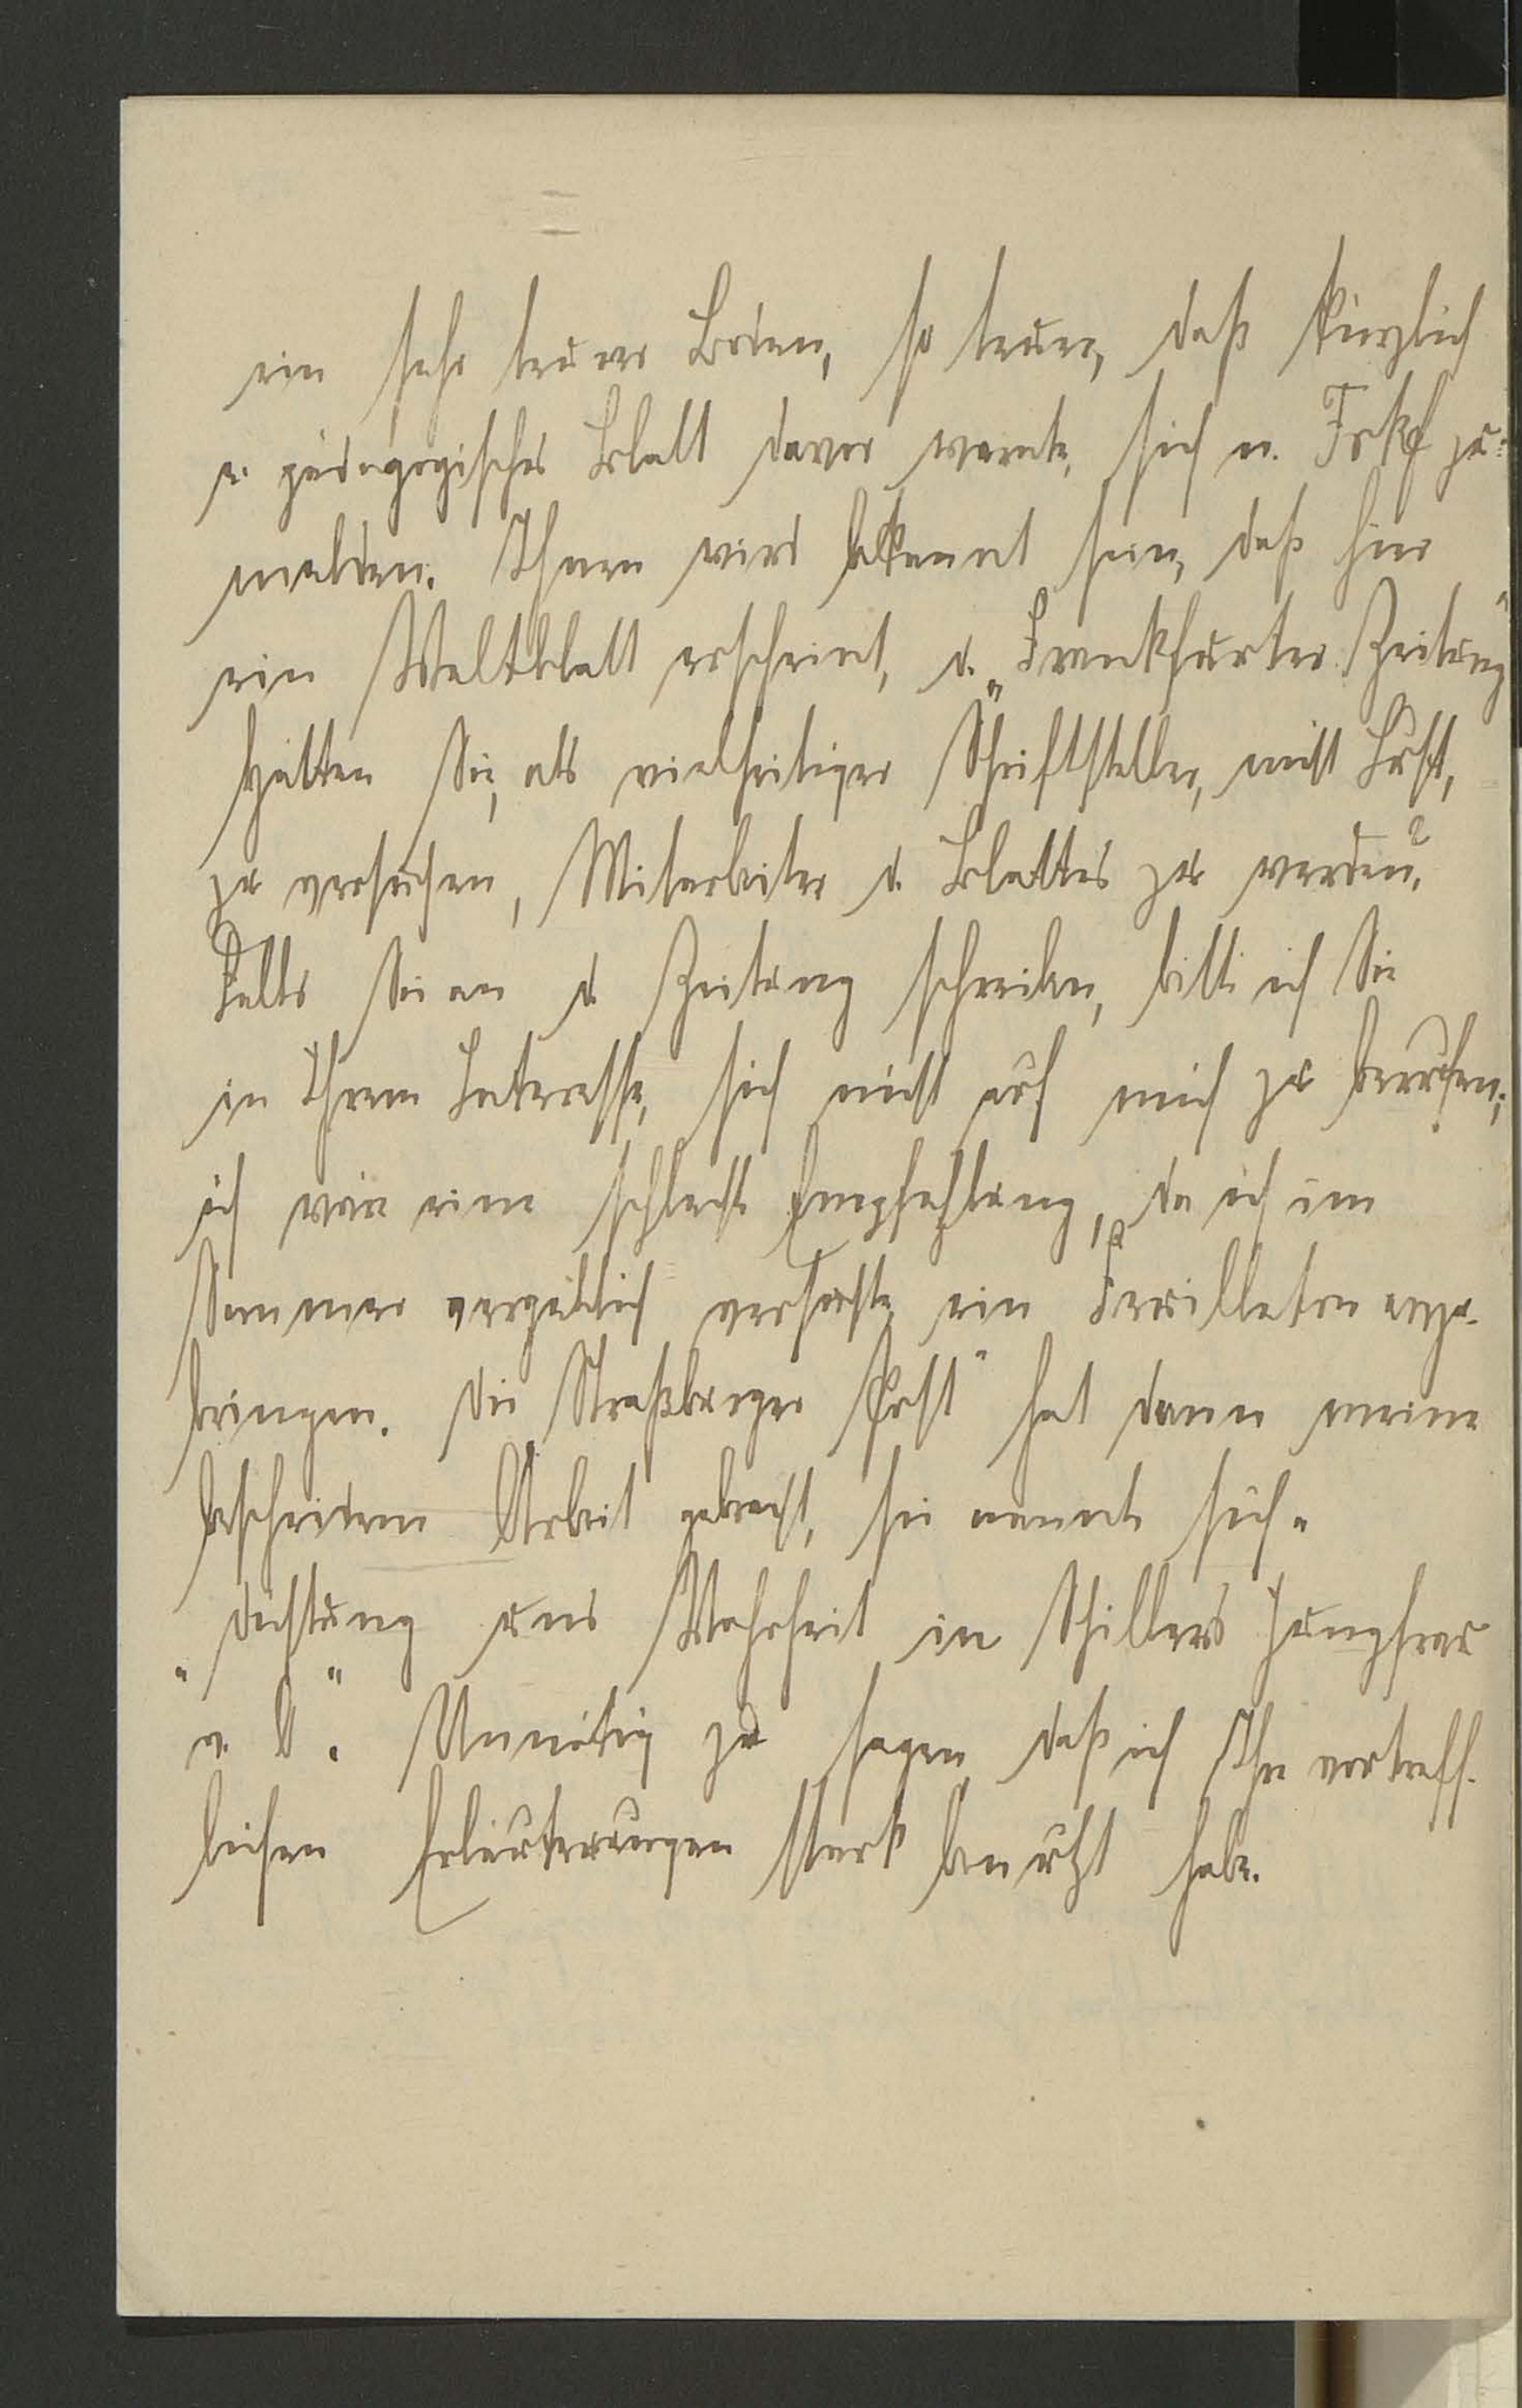 ein sehr teurer Boden, so teuer, daß kürzlich
e. pädagogisches Blatt davor warnte, sich n. Frkf zu
melden. Ihnen wird bekannt sein, daß hier
ein Weltblatt erscheint, d. „Frankfurter Zeitung“
Hätten Sie, als vielseitiger Schriftsteller, nicht Lust,
zu versuchen, Mitarbeiter d. Blattes zu werden?
Falls Sie an d. Zeitung schreiben, bitte ich Sie
in Ihrem Interesse, sich nicht auf mich zu berufen;
ich wäre eine schlechte Empfehlung, da ich im
Sommer vergeblich versuchte, ein Feuilleton anzu-
bringen. Die Straßburger Post“ hat dann meine
bescheidene Arbeit gebracht, sie nennt sich
„Dichtung und Wahrheit in Schillers Jungfrau
v. O“. Unnötig zu sagen daß ich Ihre vortreff-
lichen Erläuterungen stark benutzt habe.